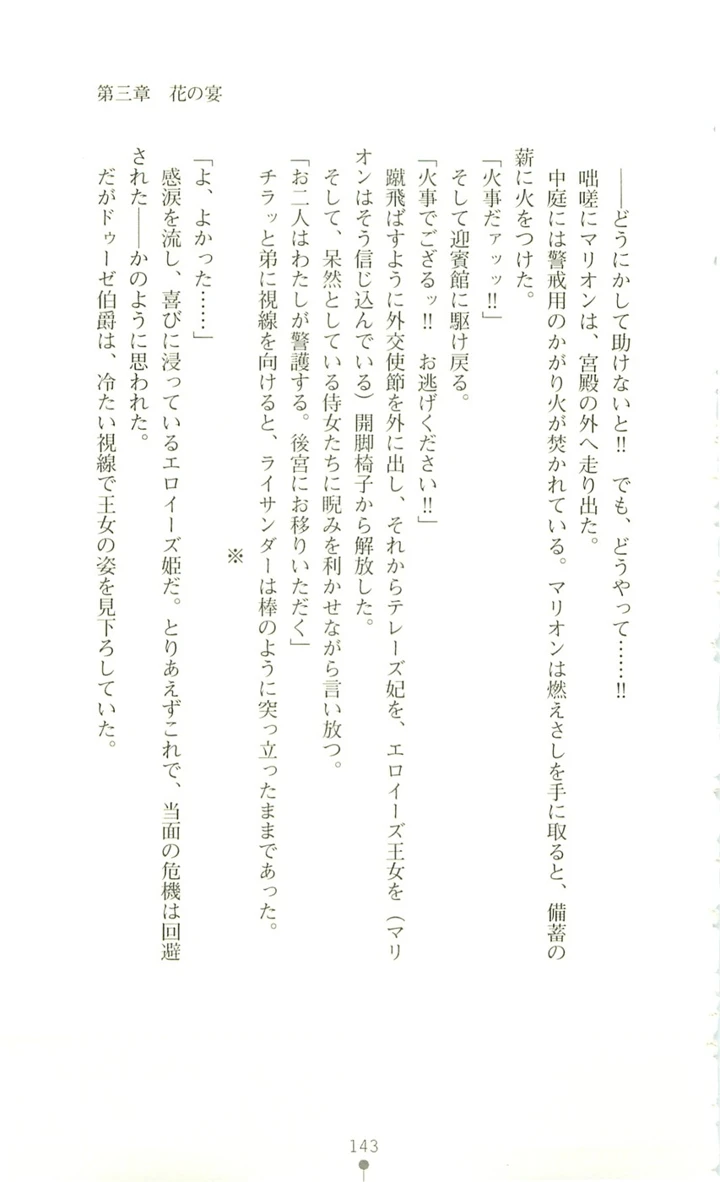 第三章　花の宴
――どうにかして助けないと!!　でも、どうやって……!!
咄嗟にマリオンは、宮殿の外へ走り出た。
中庭には警戒用のかがり火が焚かれている。マリオンは燃えさしを手に取ると、備蓄の
薪に火をつけた。
「火事だァッッ!!」
そして迎賓館に駆け戻る。
「火事でござるッ!!　お逃げください!!」
蹴飛ばすように外交使節を外に出し、それからテレーズ妃を、エロイーズ王女を（マリ
オンはそう信じ込んでいる）開脚椅子から解放した。
そして、呆然としている侍女たちに睨みを利かせながら言い放つ。
「お二人はわたしが警護する。後宮にお移りいただく」
チラッと弟に視線を向けると、ライサンダーは棒のように突っ立ったままであった。
※
「よ、よかった……」
感涙を流し、喜びに浸っているエロイーズ姫だ。とりあえずこれで、当面の危機は回避
された――かのように思われた。
だがドゥーゼ伯爵は、冷たい視線で王女の姿を見下ろしていた。
143